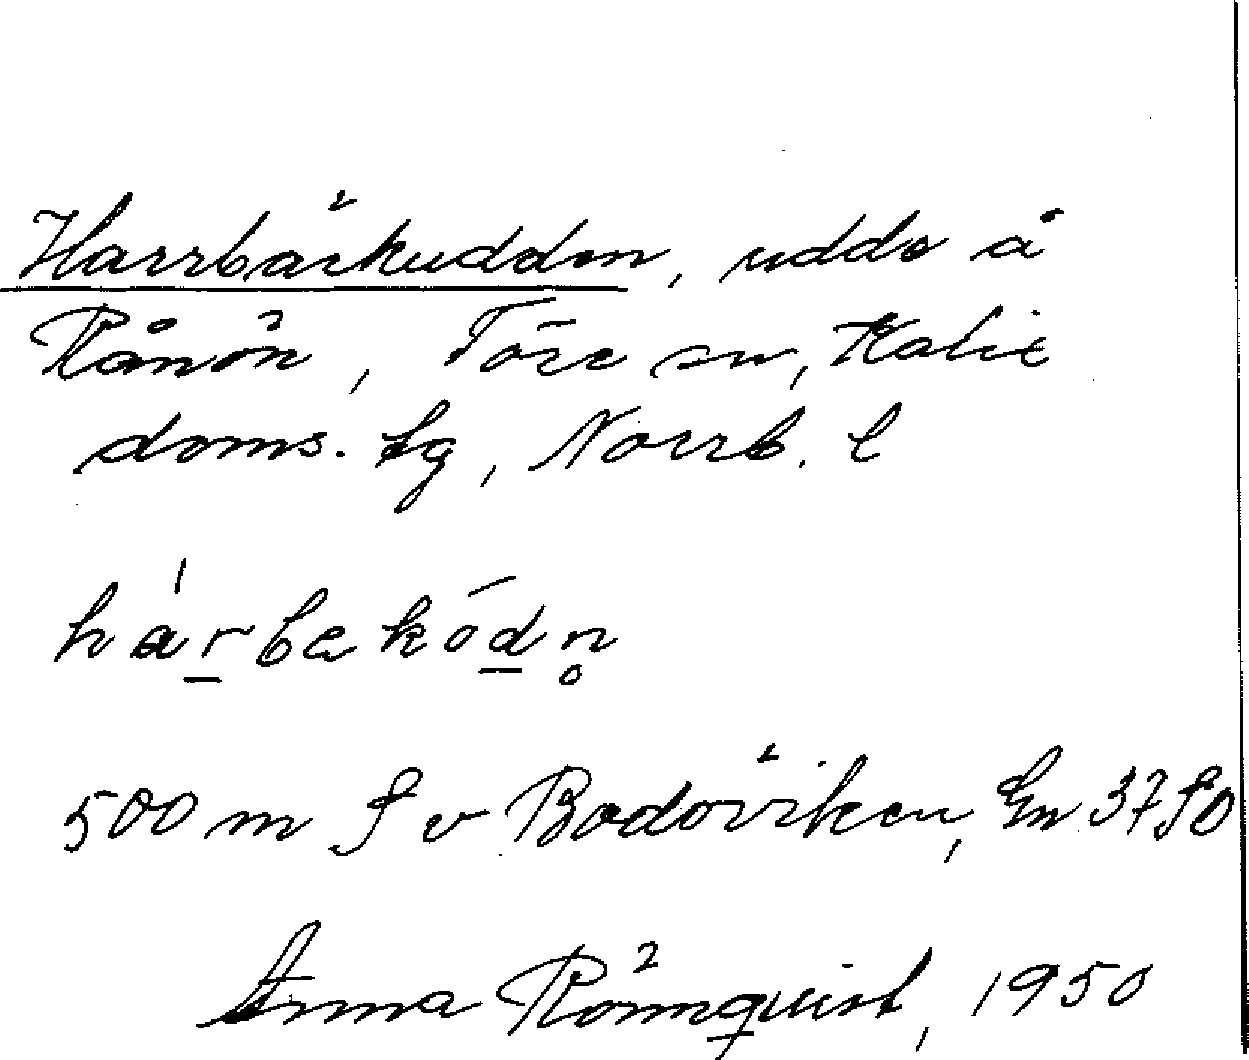 Harrbäckudden, udde å
Rånön, Töre sn, Kalix
doms. tg, Norrb. l
hárbakódn̥
500 m S v Bodöviken, En 37 SO
Anna Rönnquist, 1950